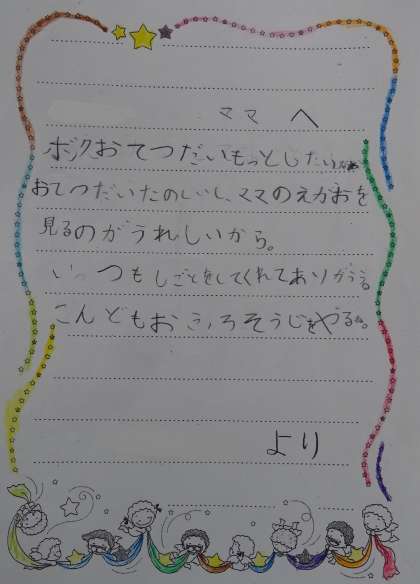 ママ へ
ボクおてつだいもっとしたい
おてつだいたのしいし、ママのえがおを
見るのがうれしいから。
いつもしごとをしてくれてありがとう。
こんどもおふろそうじをやるね。
より